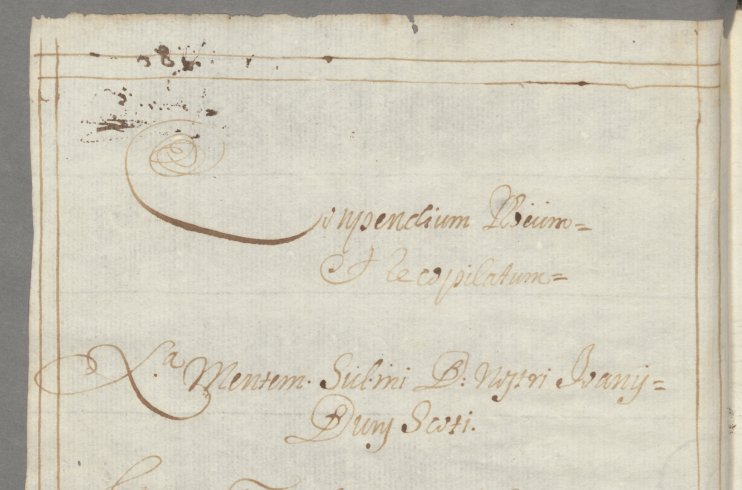 Conpendium Breum=
et Recopilatum=
X.a Mentem. Subtmi D: Nostri Joanij=
Dunj Scoti.